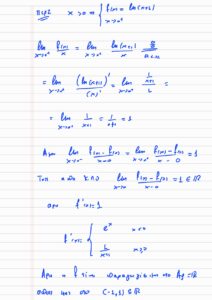 x>0 ⇒ { f(x) = ln(x+1)
x→0⁺
lim x→0⁺ f(x)/x = lim x→0⁺ ln(x+1)/x
= lim x→0⁺ (ln(x+1))'/(x)' = lim x→0⁺ (1/(x+1))/1 =
= lim x→0⁺ 1/(x+1) = 1/(0+1) = 1
Αρα lim x→0⁻ (f(x)-f(0))/(x-0) = lim x→0⁺ (f(x)-f(0))/(x-0) = 1
Τοτε lim x→0 (f(x)-f(0))/(x-0) = 1 ∈ ℝ
αρα f'(0)=1
f'(x) = { eˣ x<0
1/(x+1) x≥0
Αρα η f είναι παραγωγίσιμη στο A_f = ℝ
στο (-1,1) ⊆ ℝ